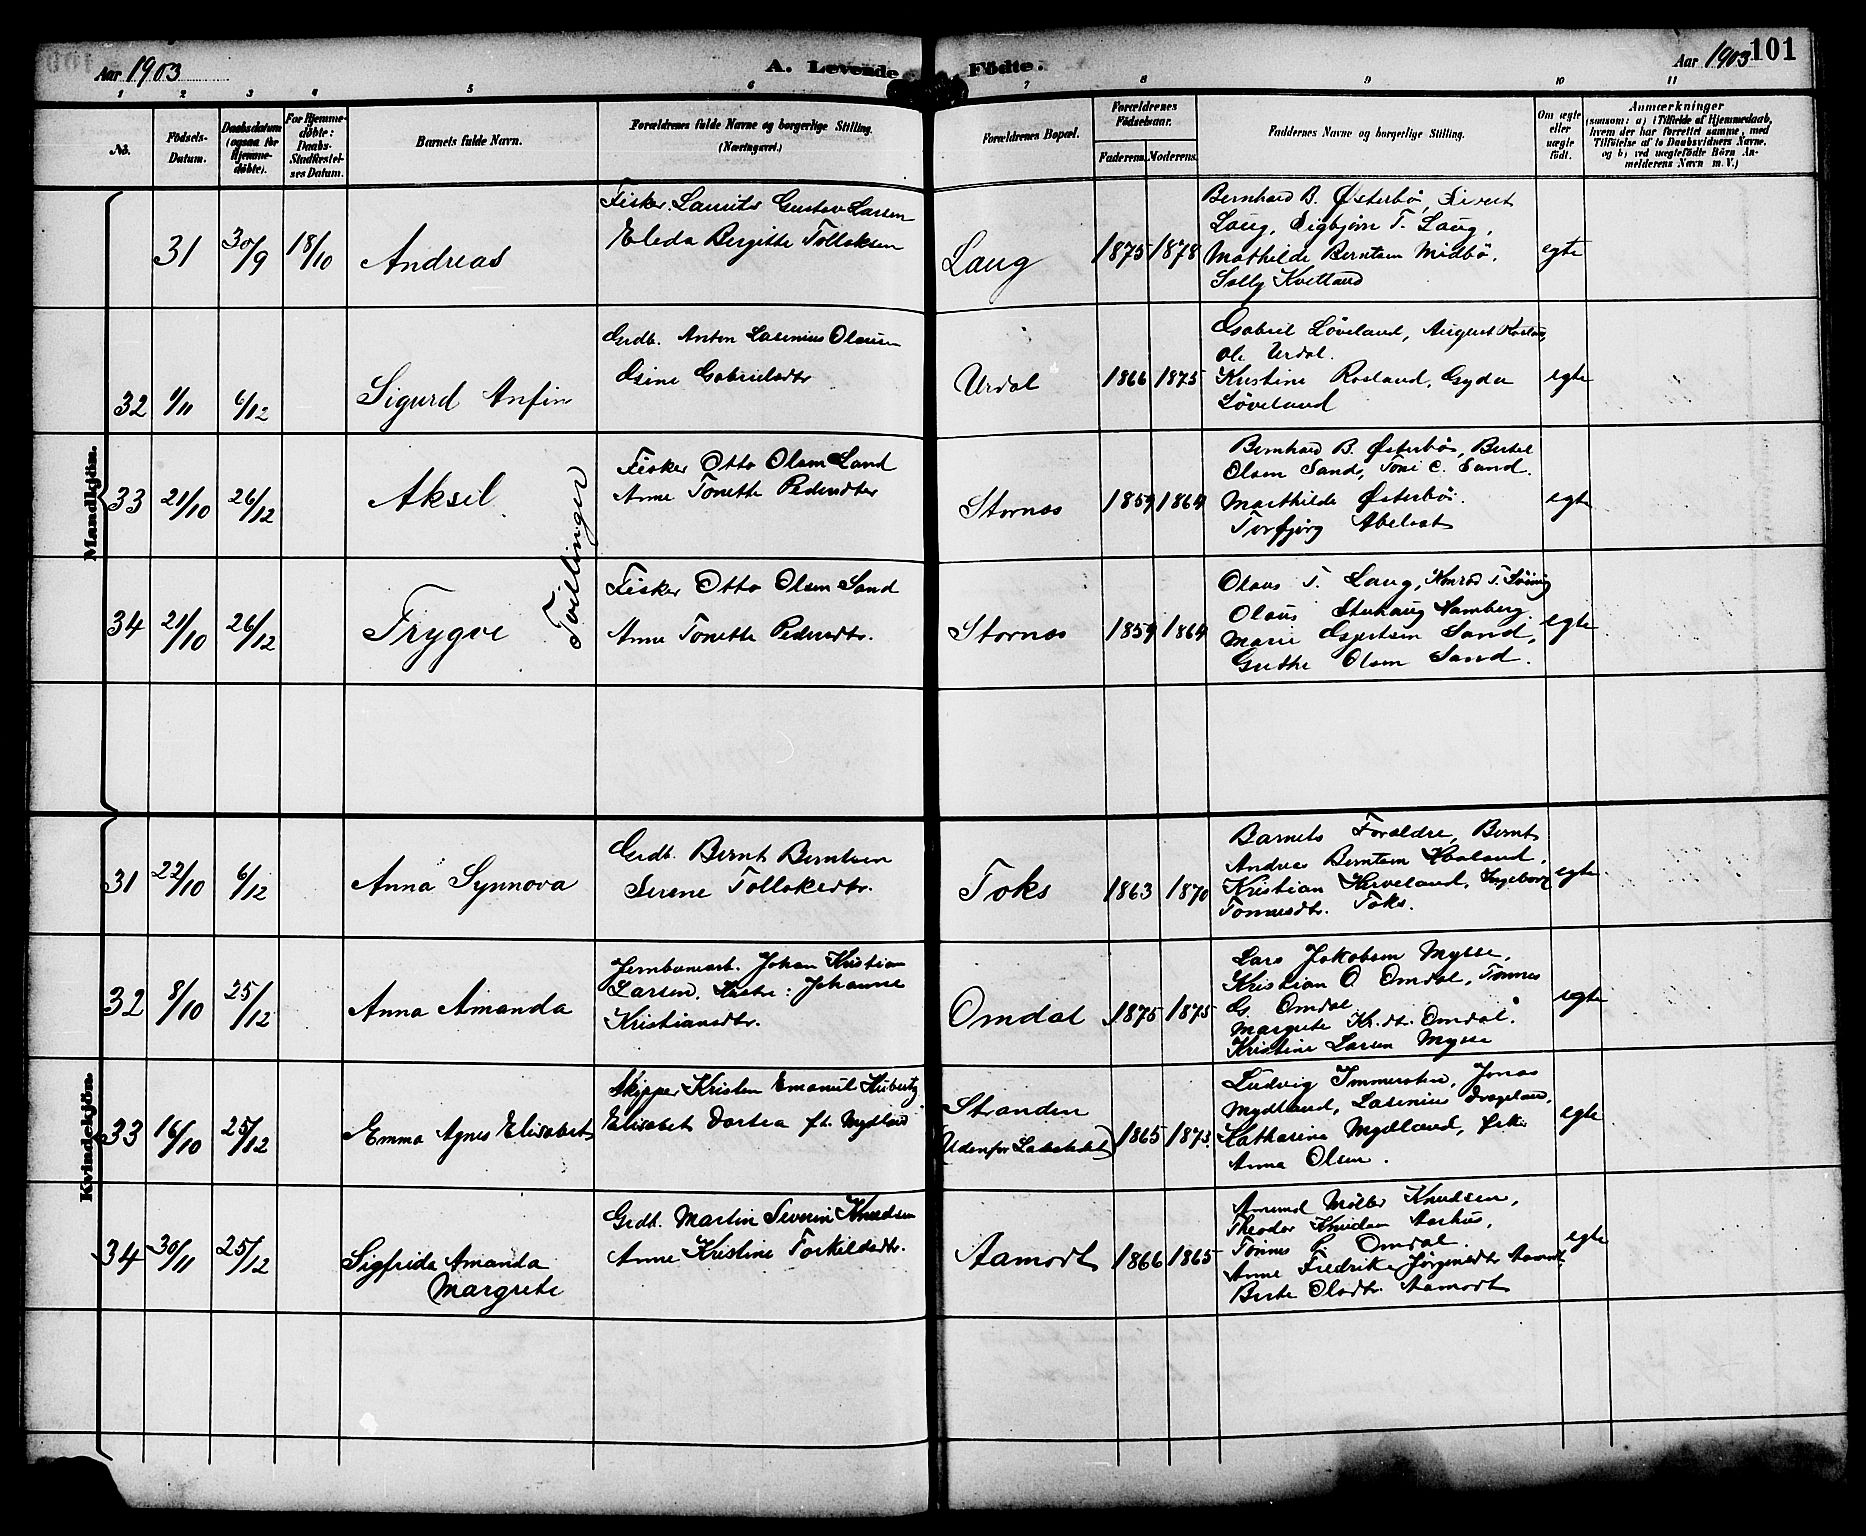 Aar 1903
A. Levende Födte.
Aar 1903
101
1 2 3 4 5 6 7 8 9 10 11
No.
Födsels-
Datum.
Daabsdatum
(ogsaa for
Hjemme-
döbte).
For Hjemme-
döbte:
Daabs-
Stadfæstel-
ses Datum.
Barnets fulde Navn.
Forældrenes fulde Navne og borgerlige Stilling.
(Næringsvei.)
Forældrenes Bopæl.
Forældrenes
Födselsaar.
Faderens. Moderens.
Faddernes Navne og borgerlige Stilling.
Om ægte
eller
uægte
födt.
Anmærkninger
(saasom: a) i Tilfælde af Hjemmedaab,
hvem der har forrettet samme, med
Tilföielse af to Daabsvidners Navne,
og b) ved uægtefödte Börn An-
melderens Navn m. V.)
Mandkjön.
31 30/9 18/10
Andreas
Fisker Lauritz Gustav Larsen
Eleda Bergitte Tollaksen
Laug
1875 1878
Bernhard B. Østerbö, Sivert
Laug, Sigbjørn T. Laug,
Mathilde Berntsen Midbö,
Sally Kvelland
egte
32 1/11 6/12
Sigurd Anfin
Grdb. Anton Lasenius Olausen
Osine Gabrielsdtr
Urdal
1866 1875
Gabriel Løveland, August
Ole Urdal.
Kristine Rosland, Gyda
Løveland
egte
33 21/10 26/12
Aksel
Tvillinger
Fisker Otto Olsen Sand
Anne Tonette Pedersdter
Stornes
1859 1864
Bernhard B. Østerbö, Bertel
Olsen Sand, Toni C. Sand.
Marthilde Østerbö.
Torbjørg Abelset
egte
34 21/10 26/12
Trygve
Fisker Otto Olsen Sand
Anne Tonette Pedersdtr.
Stornes
1859 1864
Olaus T. Laug, Konrad T.
Olaus Stuhaug Namberg
Marie Espersen Sand,
Grethe Olsen Sand.
egte
Kvindekjön.
31 22/10 6/12
Anna Synnova
Grdb. Bernt Berntsen
Serene Tollaksdtr.
Toks
1863 1870
Barnets Forældre, Bernt
Andreas Berntsen Haaland,
Kristian Kerveland, Ingeborg
Tønnesdtr. Toks.
egte.
32 8/10 25/12
Anna Amanda
Jernbanearb. Johan Kristian
Larsen. Hustru: Johanne
Kristiansdtr.
Omdal
1875 1875
Lars Jakobsen Mysse,
Kristian O Omdal, Tønnes
G. Omdal
Margrete Kr.dtr. Omdal.
Kristine Larsen Mysse
egte
33 16/10 25/12
Emma Agnes Elisabet
Skipper Kristen Emanuel Hubertz
Elisabet Dortea f. Mydland
Stranden
(Udenfor Ladestedet)
1865 1873.
Ludvig Immerstein, Jonas
Mydland, Lasenius Drageland,
Katharina Mydland,
Anna Olsen.
egte
34 30/11 25/12
Sigfrida Amanda
Margrete
Grdb. Martin Severin Knudsen
Anne Kristine Torkildsdtr.
Aamodt
1866 1865
Amund Møller Knudsen,
Theodor Knudsen Aarhus,
Tønnes G. Omdal.
Anne Fredrikke Jørgensdtr Aamodt
Berte Olsdtr. Aamodt
egte